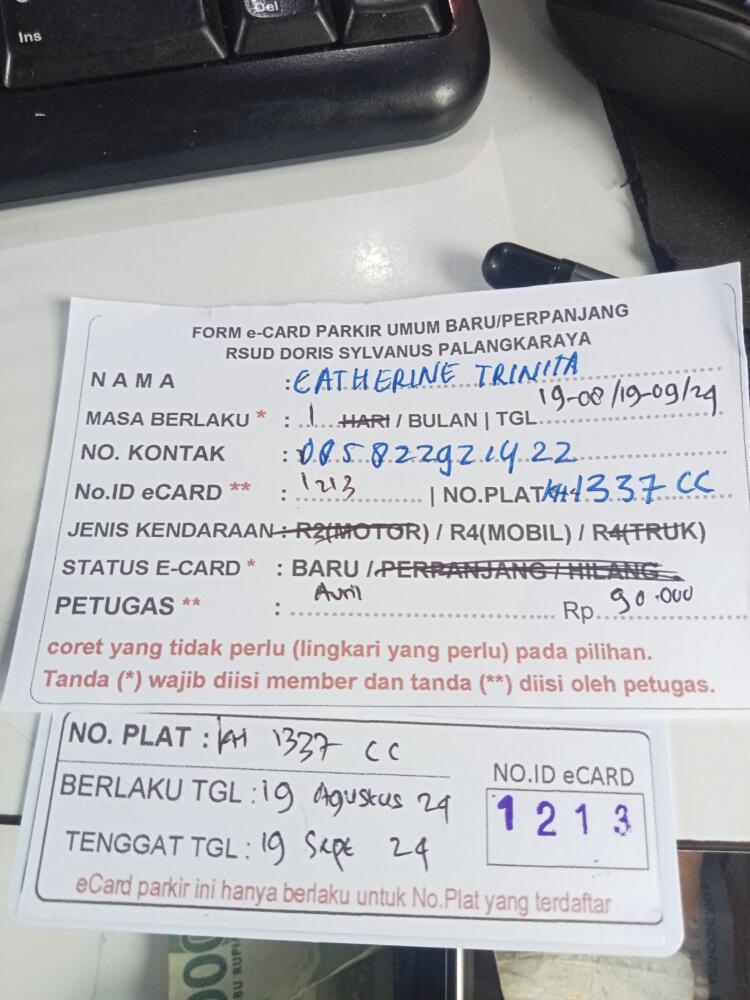 Ins
Del
FORM e-CARD PARKIR UMUM BARU/PERPANJANG
RSUD DORIS SYLVANUS PALANGKARAYA
NAMA : CATHERINE TRINITA
MASA BERLAKU * : 1 HARI / BULAN | TGL 19-08/19-09/24
NO. KONTAK : 085822921422
No.ID eCARD ** : 1213 | NO.PLAT KH 1337 CC
JENIS KENDARAAN : R2(MOTOR) / R4(MOBIL) / R4(TRUK)
STATUS E-CARD * : BARU / PERPANJANG / HILANG
PETUGAS ** : Avril Rp 90.000
coret yang tidak perlu (lingkari yang perlu) pada pilihan.
Tanda (*) wajib diisi member dan tanda (**) diisi oleh petugas.
NO. PLAT : KH 1337 CC
BERLAKU TGL : 19 Agustus 24
TENGGAT TGL : 19 Sept 24
NO.ID eCARD
1213
eCard parkir ini hanya berlaku untuk No.Plat yang terdaftar